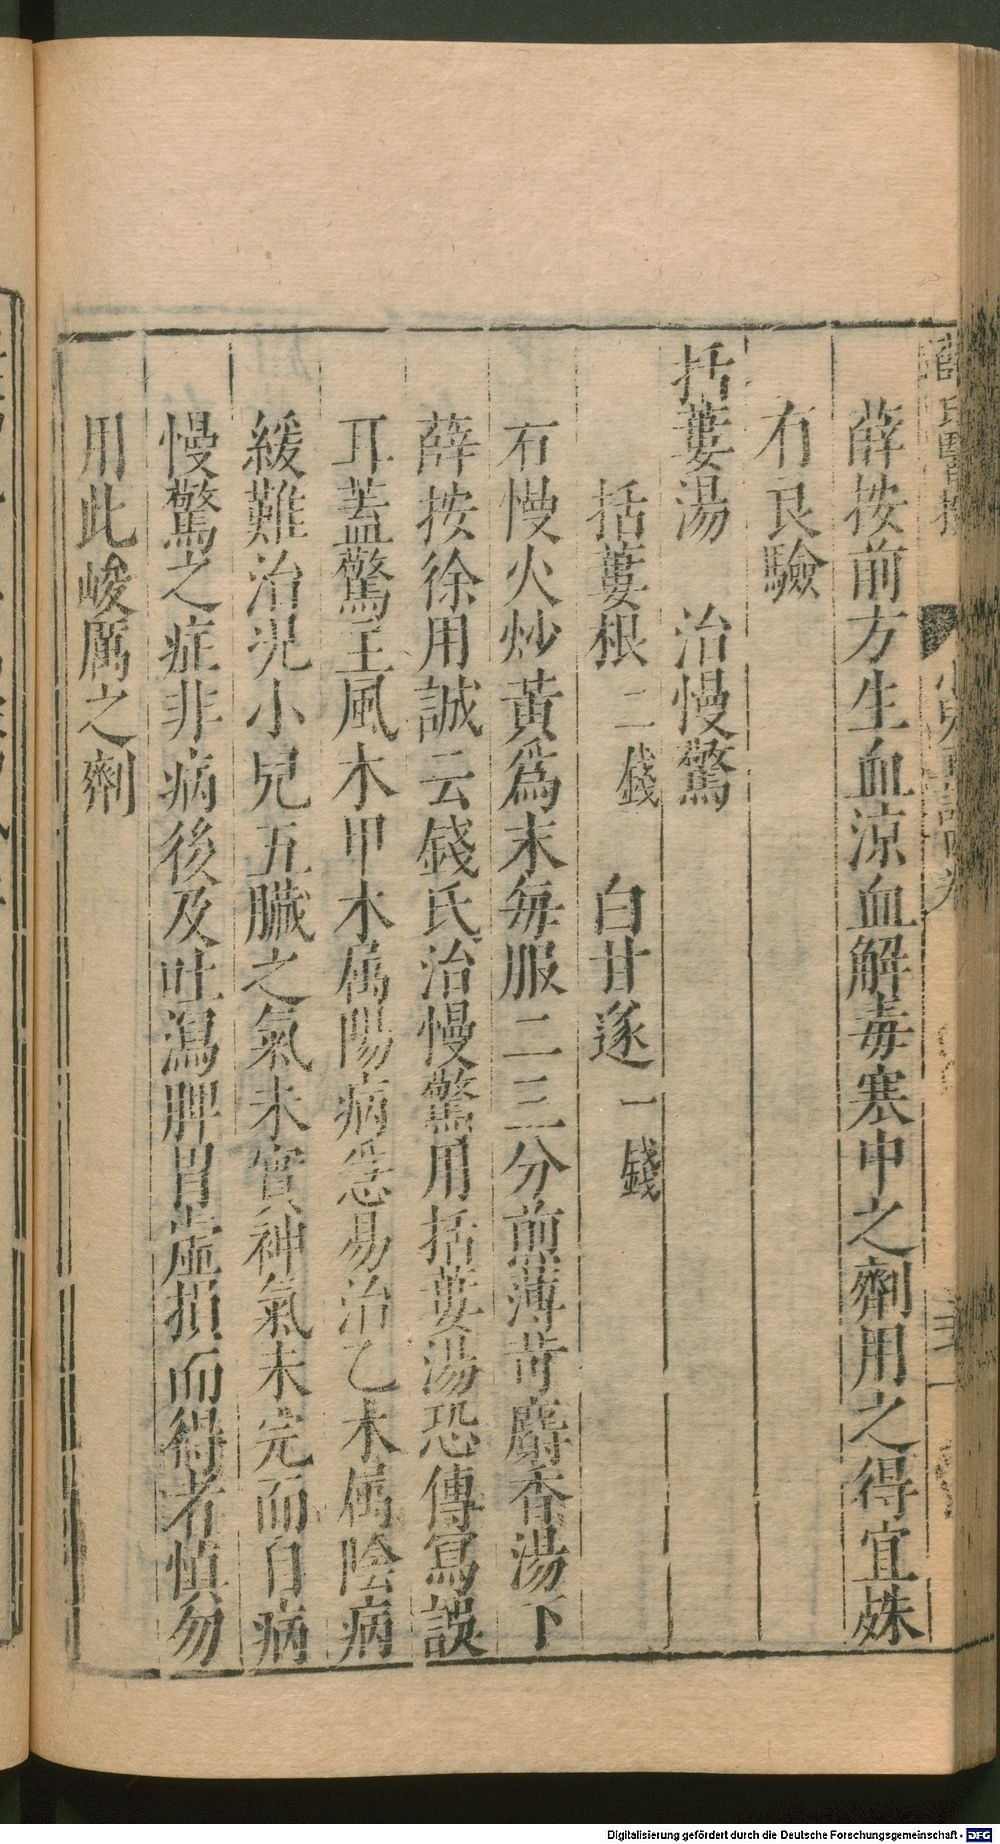 薛按前方生血涼血解毒寒中之劑用之得宜殊
有良驗
括蔞湯　治慢驚
括蔞根二錢　白甘遂一錢
右慢火炒黃爲末每服二三分煎薄荷麝香湯下
薛按徐用誠云錢氏治慢驚用括蔞湯恐傳寫誤
耳蓋驚主風木甲木属陽病急易治乙木属陰病
緩難治况小兒五臟之氣未實神氣未完而自病
慢驚之症非病後及吐瀉脾胃虛損而得者慎勿
用此峻厲之劑
Digitalisierung gefördert durch die Deutsche Forschungsgemeinschaft - DFG